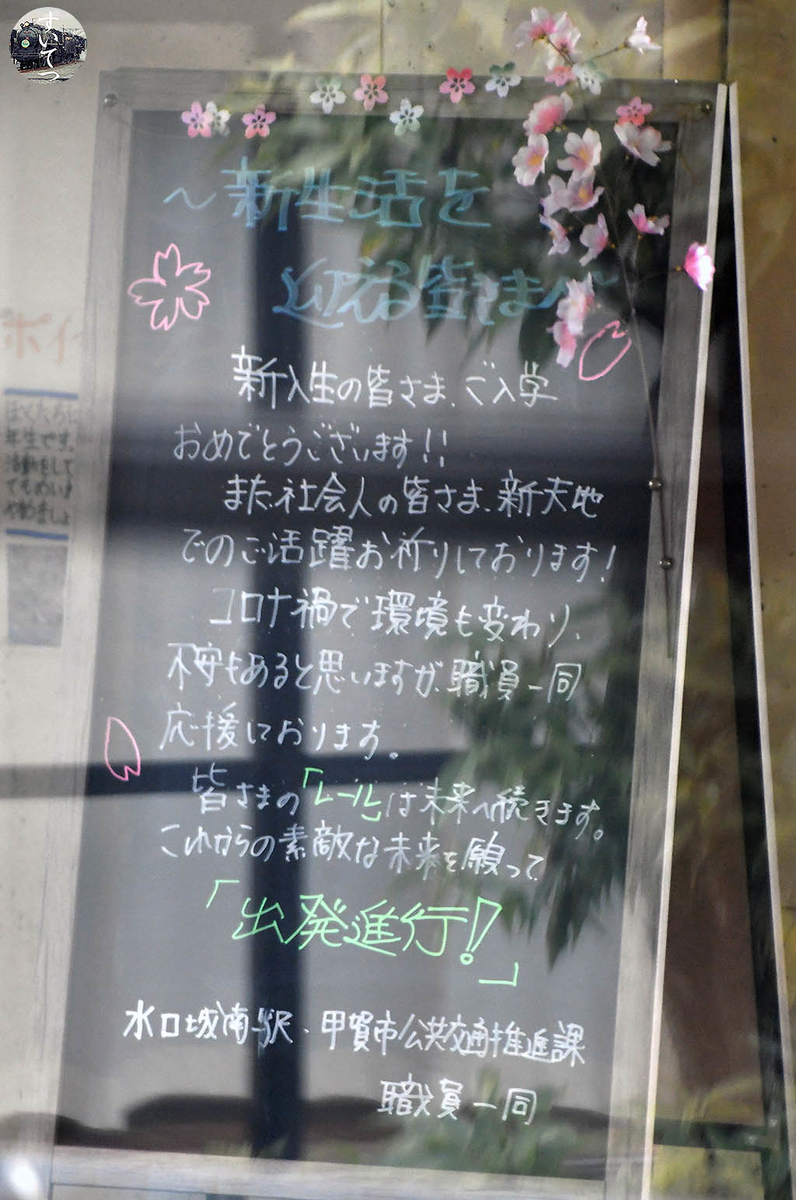 すいてつ
～新生活を
迎える皆さまへ～
新入生の皆さま、ご入学
おめでとうございます!!
また、社会人の皆さま、新天地
でのご活躍お祈りしております!
コロナ禍で環境も変わり、
不安もあると思いますが、職員一同
応援しております。
皆さまの「レール」は未来へ続きます。
これからの素敵な未来を願って
「出発進行!」
水口城南駅・甲賀市公共交通推進課
職員一同
ポイ
年生です。
活動をして